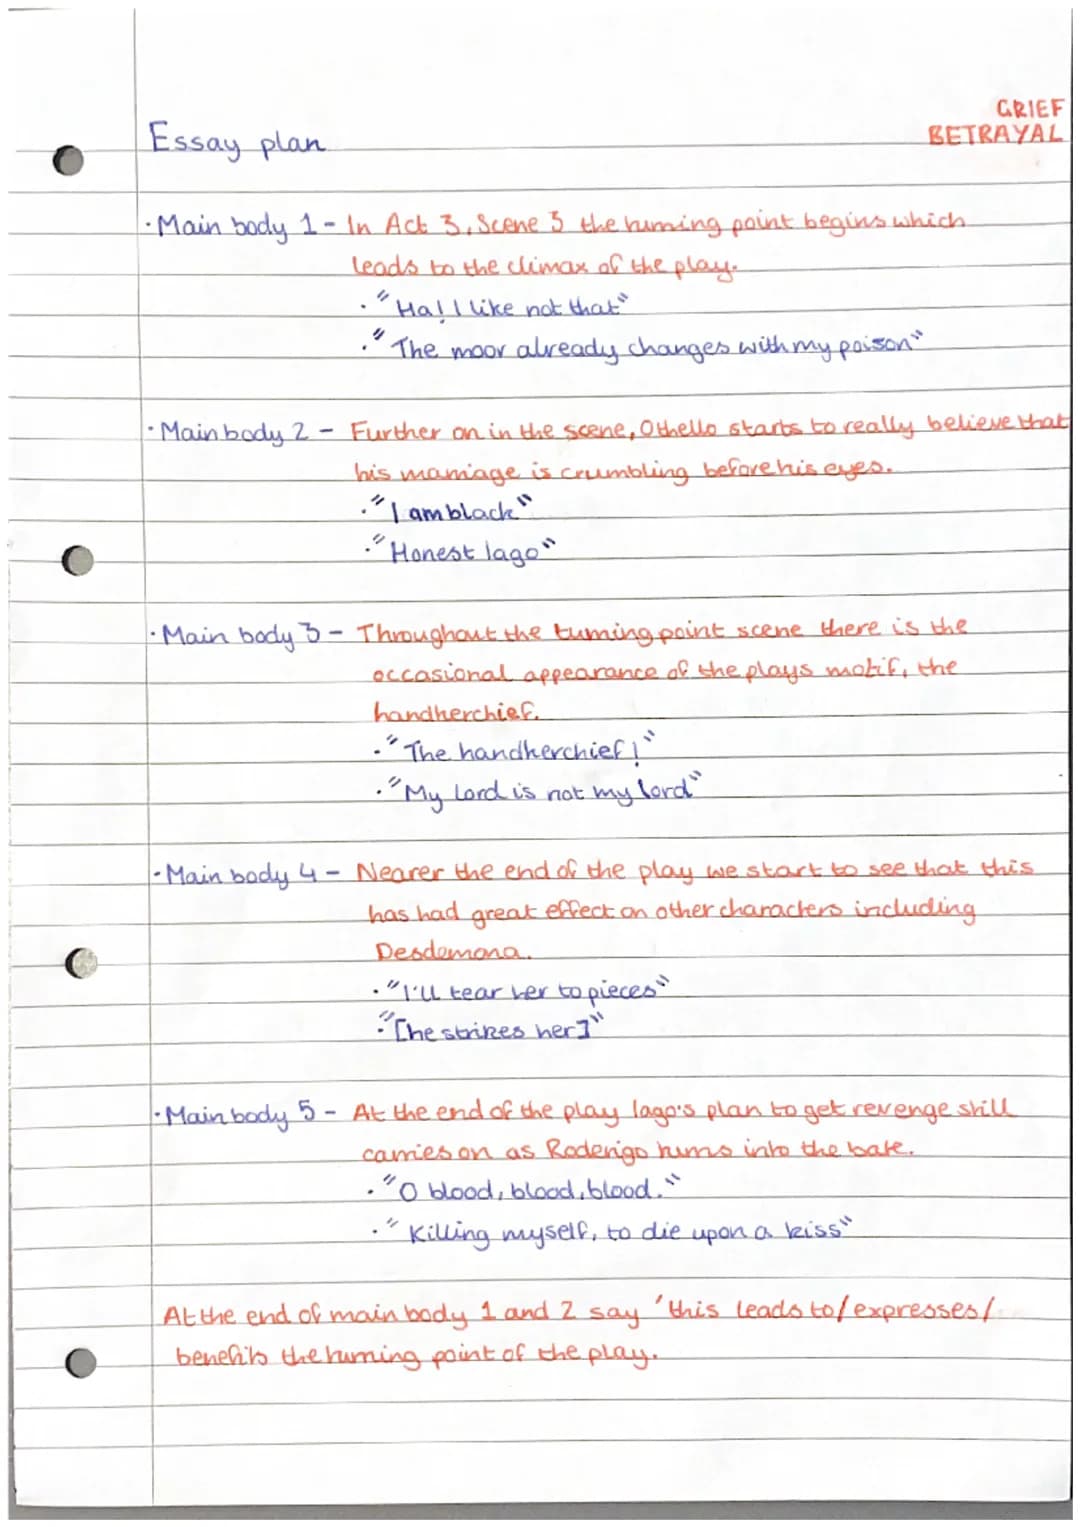 GRIEF
BETRAYAL
Essay plan
· Main body 1 - In Act 3, Scene 3 the turning point begins which
leads to the climax of the play.
· "Ha! I like not that"
· "The moor already changes with my poison"
· Main body 2 - Further on in the scene, Othello starts to really believe that
his marriage is crumbling before his eyes.
· "I am black"
· "Honest Iago"
· Main body 3 - Throughout the turning point scene there is the
occasional appearance of the plays motif, the
handkerchief.
· "The handkerchief!"
· "My Lord is not my lord"
· Main body 4 - Nearer the end of the play we start to see that this
has had great effect on other characters including
Desdemona.
· "I'll tear her to pieces"
· "[he strikes her]"
· Main body 5 - At the end of the play Iago's plan to get revenge still
carries on as Roderigo turns into the bate.
· "O blood, blood, blood."
· "Killing myself, to die upon a kiss"
At the end of main body 1 and 2 say 'this leads to/expresses/
benefits the turning point of the play.